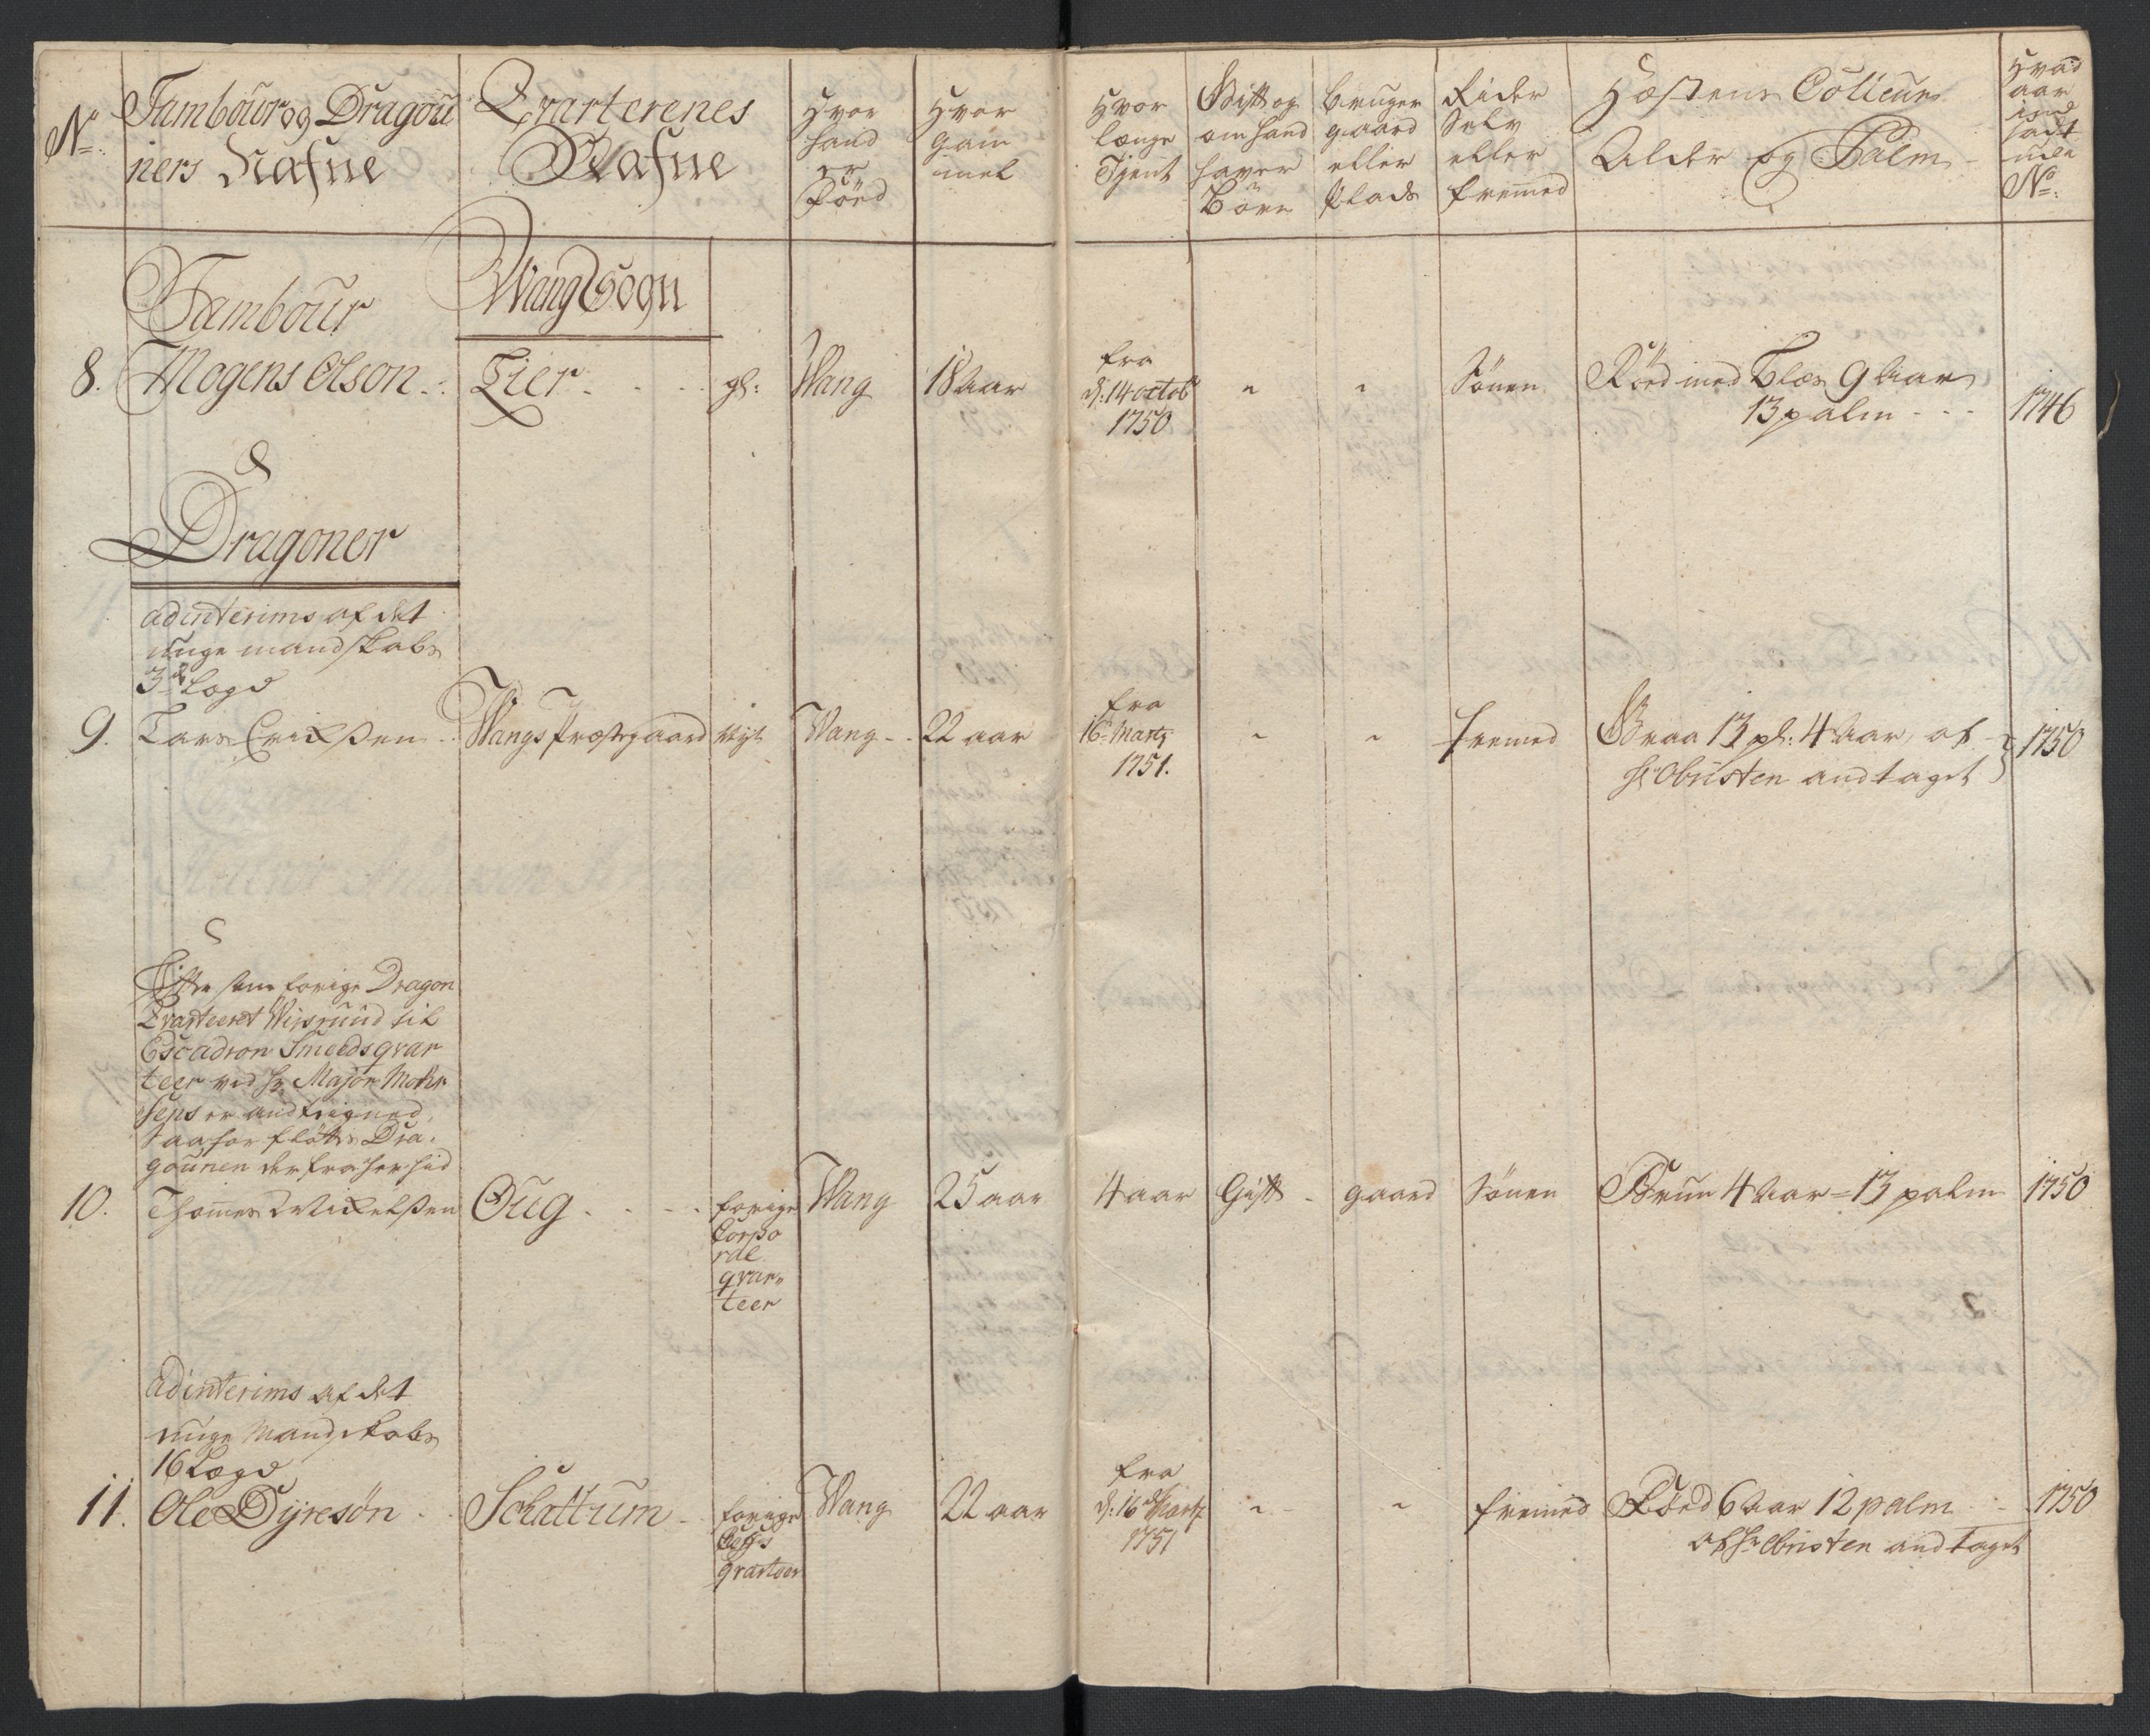 No:
Tambour og Dragou
ners Nafne
Qvarterenes
Nafne
Hvor
hand
er
Föed
Hvor
gam
mel
Hvor
længe
Tjent
Gift og
om hand
haver
Börn
bruger
gaard
eller
Plads
Rider
Selv
eller
fremmed
Hæstens Colleur
Alder og Palm
Hvad
aar
ind
satt
under
No:
Tambour
Wang Sogn
8. Mogens Olson
Lier
gl:
Wang
18 aar
fra
d: 14 octob
1750
"
"
Sönen
Röed med Blæs 9 aar
13 palm
1746
Dragoner
ad interims af det
unge mandskabs
3de Lægd
9. Lars Erixsen
Wangs Præstegaard
Wang
22 aar
fra
16 Martz
1751.
"
"
fremed
Graa 13 pl: 4 aar, af
hr Obristen andtaget
1750
Efter som forige Dragon
Qvarteeret til
Escadron Smeds qvar
teer ved hr Major
sens er andteigned,
saa har fløttes Dra-
gounen der fra her hid
10. Thommes Mikelsen
Oug
forige
Corpo
ral
qvar-
teer
Wang
25 aar
4 aar
Gift
gaard
Sönen
Bruun 4 aar = 13 palm
1750
ad interims af det
unge Mandskabs
16 Lægd
11. Ole Dyresøn
Schattum
forige
qvarteer
Wang
22 aar
fra
d: 16 Martz
1751
"
"
fremed
Röed 6 aar 12 palm
af hr Obristen andtaget
1750